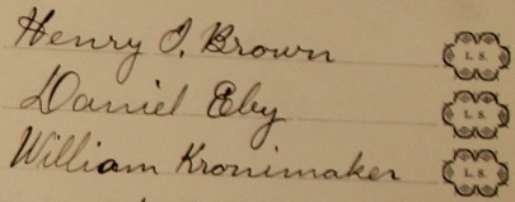 Henry O. Brown L. S.
Daniel Eby L. S.
William Kronimaker L. S.